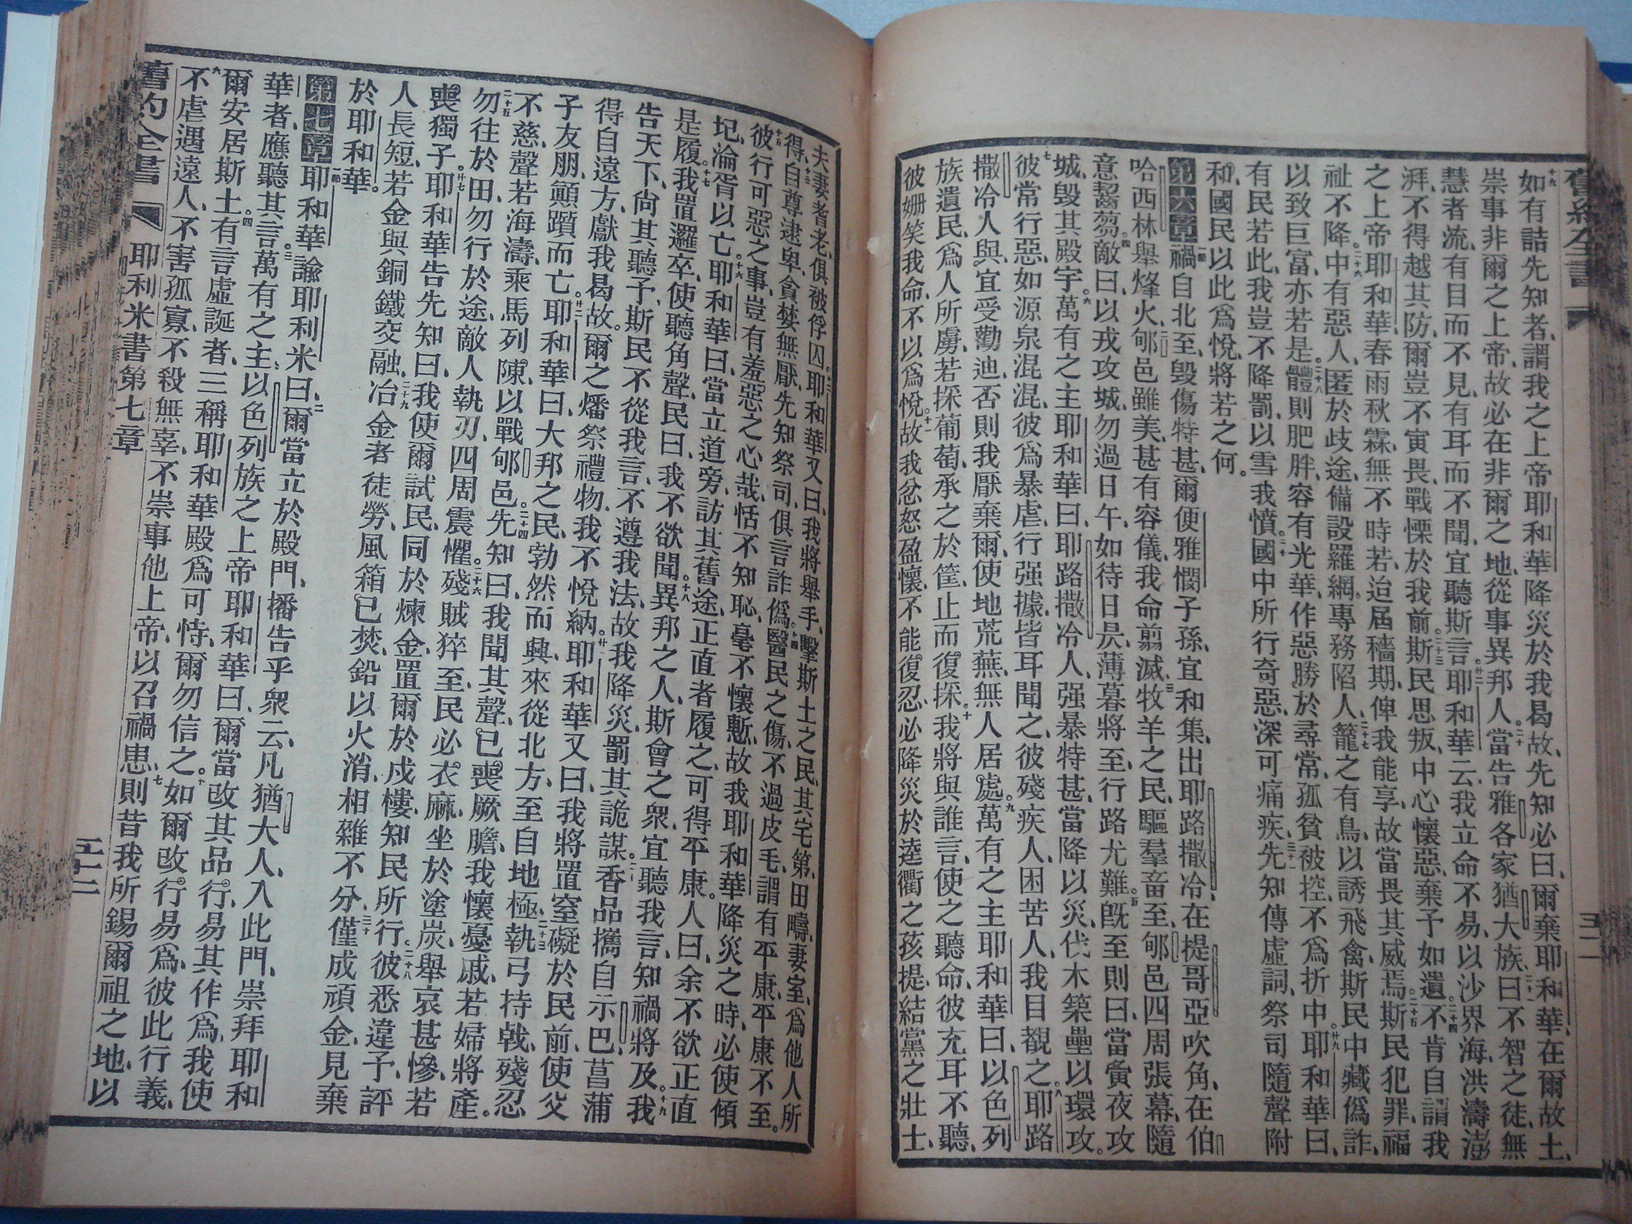 舊約全書
如有詰先知者、謂我之上帝耶和華降災於我曷故、先知必曰、爾棄耶和華、在爾故土、
崇事非爾之上帝、故必在非爾之地、從事異邦人、當告雅各家猶大族、曰不智之徒、無
慧者流、有目而不見、有耳而不聞、宜聽斯言、耶和華云、我立命不易、以沙界海、洪濤澎
湃、不得越其防、爾豈不寅畏、戰慄於我前、斯民思叛、中心懷惡、棄予如遺、不肯自謂、我
之上帝耶和華、春雨秋霖、無不時若、迨屆穡期、俾我能享、故當畏其威焉、斯民犯罪、福
祉不降、中有惡人、匿於歧途、備設羅網、專務陷人、籠之有鳥、以誘飛禽、斯民中藏僞詐、
以致巨富、亦若是、體則肥胖、容有光華、作惡勝於尋常、孤貧被控、不爲折中、耶和華曰、
有民若此、我豈不降罰、以雪我憤、國中所行奇惡、深可痛疾、先知傳虛詞、祭司隨聲附
和、國民以此爲悅、將若之何。
第六章 禍自北至、毀傷特甚、爾便雅憫子孫、宜和集、出耶路撒冷、在提哥亞吹角、在伯
哈西林舉烽火、郇邑雖美、甚有容儀、我命翦滅、牧羊之民、驅羣畜至、郇邑四周張幕、隨
意齧蒭、敵曰、以戎攻城、勿過日午、如待日昃、薄暮將至、行路尤難、旣至則曰、當夤夜攻
城、毀其殿宇、萬有之主耶和華曰、耶路撒冷人、强暴特甚、當降以災、伐木築壘、以環攻、
彼常行惡、如源泉混混、彼爲暴虐、行强據、皆耳聞之、彼殘疾人、困苦人、我目覩之、耶路
撒冷人與、宜受勸迪、否則我厭棄爾、使地荒蕪、無人居處、萬有之主耶和華曰、以色列
族遺民、爲人所虜、若採葡萄、承之於筐、止而復採、我將與誰言、使之聽命、彼充耳不聽、
彼姍笑我命、不以爲悅、故我忿怒盈懷、不能復忍、必降災於逵衢之孩提、結黨之壯士、
夫妻耆老、俱被俘囚、耶和華又曰、我將舉手、擊斯土之民、其宅第、田疇、妻室、爲他人所
得、自尊逮卑、貪婪無厭、先知祭司、俱言詐僞、醫民之傷、不過皮毛、謂有平康、平康不至。
彼行可惡之事、豈有羞惡之心哉、恬不知恥、毫不懷慙、故我耶和華降災之時、必使傾
圮、淪胥以亡、耶和華曰、當立道旁、訪其舊途、正直者履之、可得平康。人曰、余不欲正直
是履、我置邏卒、使聽角聲、民曰、我不欲聞、異邦之人、斯會之衆、宜聽我言、知禍將及、我
告天下、尙其聽予、斯民不從我言、不遵我法、故我降災、罰其詭謀、香品攜自示巴、菖蒲
得自遠方、獻我曷故、爾之燔祭禮物、我不悅納、耶和華又曰、我將置窒礙於民前、使父
子友朋、顚躓而亡、耶和華曰、大邦之民、勃然而興、來從北方、至自地極、執弓持戟、殘忍
不慈、聲若海濤、乘馬列陳、以戰郇邑、先知曰、我聞其聲、已喪厥膽、我懷憂戚、若婦將產。
勿往於田、勿行於途、敵人執刃、四周震懼、殘賊猝至、民必衣麻、坐於塗炭、舉哀甚慘、若
喪獨子、耶和華告先知曰、我使爾試民、同於煉金、置爾於戍樓、知民所行、彼悉違予、評
人長短、若金與銅鐵交融、冶金者徒勞、風箱已焚、鉛以火消、相雜不分、僅成頑金、見棄
於耶和華。
第七章 耶和華諭耶利米曰、爾當立於殿門、播告乎衆云、凡猶大人、入此門、崇拜耶和
華者、應聽其言、萬有之主、以色列族之上帝耶和華曰、爾當改其品行、易其作爲、我使
爾安居斯土、有言虛誕者、三稱耶和華殿爲可恃、爾勿信之、如爾改行易爲、彼此行義、
不虐遇遠人、不害孤寡、不殺無辜、不崇事他上帝、以召禍患、則昔我所錫爾祖之地、以
舊約全書 耶利米書第七章